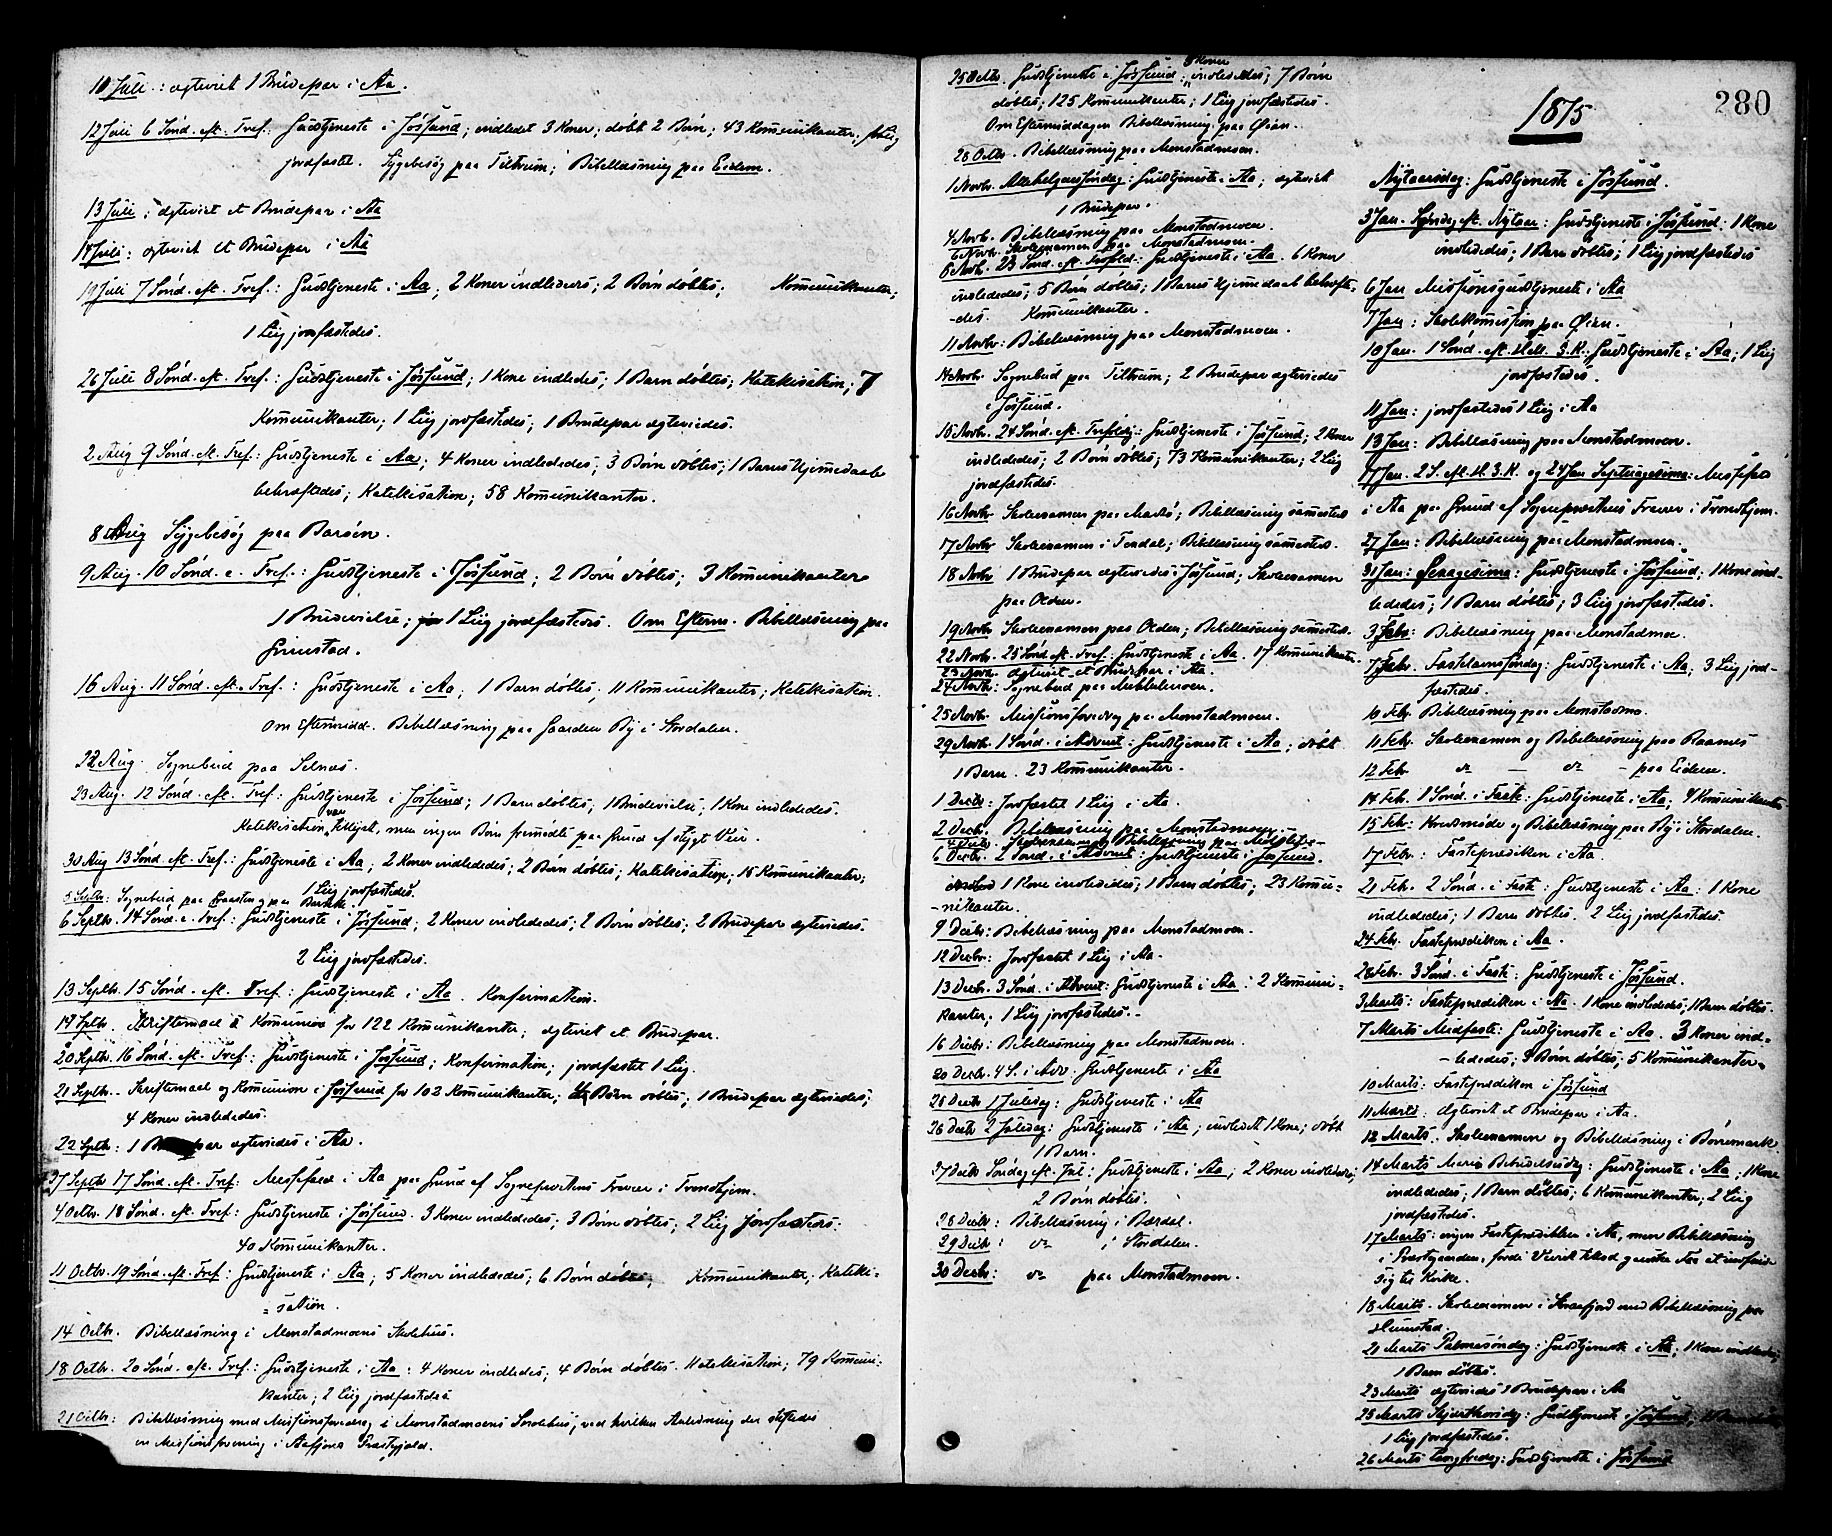 10 Juli: ægteviet 1 Brudepar i Aa.
12 Juli 6 Sönd. eft. Tref.: Gudstjeneste i Jössund; indledet 3 Koner; döbt 2 Börn; 43 Kommunikanter; 1 Liig
jordfæstet. Sygebesög paa Tiltrum; Bibellæsning paa Eidem.
13 Juli; ægteviet et Brudepar i Aa
14 Juli: ægteviet et Brudepar i Aa
19 Juli 7 Sönd. eft. Tref.: Gudstjeneste i Aa; 2 Koner indledes; 2 Börn döbtes; Kommunikanter;
1 Liig jordfæstedes.
26 Juli 8 Sönd. eft. Tref.: Gudstjeneste i Jössund; 1 Kone indledes; 1 Barn döbtes; Katekisation; 7
Kommunikanter; 1 Liig jordfæstedes; 1 Brudepar ægteviedes.
2 Aug 9 Sönd. eft. Tref.: Gudstjeneste i Aa; 4 Koner indlededes; 3 Börn döbtes; 1 Barns Hjemmedaab
bekræftedes; Katekisation; 58 Kommunikanter.
8 Aug Sygebesög paa Barsön.
9 Aug. 10 Sönd. e. Tref.: Gudstjeneste i Jössund; 2 Börn döbtes; 3 Kommunikanter
1 Brudevielse; 1 Liig jordfæstedes. Om Efterm. Bibellæsning paa
Grimstad.
16 Aug. 11 Sönd. eft. Tref.: Gudstjeneste i Aa; 1 Barn döbtes, 11 Kommunikanter; Katekisation.
Om Eftermidd. Bibellæsning paa Gaarden By i Stordalen.
22 Aug. Sognebud paa Selnæs.
23 Aug. 12 Sönd. eft. Tref.: Gudstjeneste i Jössund; 1 Barn döbtes; 1 Brudevielse, 1 Kone indlededes.
Katekisation var tillyst, men ingen Börn fremödte paa Grund af stygt Veir.
30 Aug 13 Sönd. eft. Tref.: Gudstjeneste i Aa; 2 Koner indlededes; 2 Börn döbtes; Katekisation; 15 Kommunikanter;
1 Liig jordfæstedes.
5 Septbr: Sognebud paa
6 Septbr. 14 Sönd. e. Tref.: Gudstjeneste i Jössund; 2 Koner indlededes; 2 Börn döbtes; 2 Brudepar ægteviedes.
2 Liig jordfæstedes.
13 Septbr. 15 Sönd. eft. Tref: Gudstjeneste i Aa. Konfirmation.
14 Sptbr. Skriftemaal & Kommunion for 122 Kommunikanter; ægteviet et Brudepar.
20 Sptbr. 16 Sönd. eft. Tref: Gudstjeneste i Jössund; Konfirmation; jordfæstet 1 Liig.
21 Septbr. Skriftemaal og Kommunion i Jössund for 102 Kommunikanter; 4 Börn döbtes; 1 Brudepar ægteviedes;
4 Koner indlededes.
22 Sptbr: 1 Brudepar ægteviedes i Aa.
27 Septbr 17 Sönd. eft. Tref: Messefald i Aa paa Grund af Sognepræstens Fravær i Trondhjem.
4 Octbr. 18 Sönd. eft. Tref: Gudstjeneste i Jössund. 3 Koner indlededes; 3 Börn döbtes; 2 Liig jordfæstedes:
40 Kommunikanter.
11 Octbr. 19 Sönd. eft. Tref: Gudstjeneste i Aa; 5 Koner indlededes; 6 Börn döbtes; Kommunikanter; Kateki=
=sation.
14 Octbr. Bibellæsning i Monstadmoens Skolehus.
18 Octbr. 20 Sönd. eft. Tref.: Gudstjeneste i Aa: 4 Koner indlededes; 4 Börn döbtes. Katekisation; 79 Kommuni-
kanter; 2 Liig jordfæstedes
21 Octbr: Bibellæsning med Missionsforedrag i Monstadmoens Skolehus; ved hvilken Anledning der stiftedes
en Missionsforening i Aafjord Præstegjeld.
25 Octbr. Gudstjeneste i Jössund; 8 Koner indlededes; 7 Börn
döbtes; 125 Kommunikanter; 1 Liig jordfæstedes.
Om Eftermiddagen Bibellæsning paa Öien.
28 Octbr. Bibellæsning paa Monstadmoen.
1 Novbr. Allehelgenssöndag: Gudstjeneste i Aa; ægteviet
1 Brudepar.
4 Novbr. Bibellæsning paa Monstadmoen.
6 Novbr. Skoleexamen paa Monstadmoen.
8 Novbr. 23 Sönd. eft. Trefold: Gudstjeneste i Aa. 6 Koner
indlededes; 5 Börn döbtes; 1 Barns Hjemmedaab bekræfte-
-des. Kommunikanter.
11 Novbr: Bibellæsning paa Monstadmoen.
14 Novbr. Sognebud paa Tiltrum; 2 Brudepar ægteviedes
i Jössund.
15 Novbr. 24 Sönd. eft. Trefoldig: Gudstjeneste i Jössund; 2 Koner
indlededes; 2 Börn döbtes; 73 Kommunikanter; 2 Liig
jordfæstedes.
16 Novbr Skoleexamen paa; Bibellæsning sammesteds
17 Novbr Skoleexamen i; Bibellæsning sammesteds.
18 Novbr 1 Brudepar ægteviedes i Jössund; Skoleexamen
paa Olden.
19 Novbr Skoleexamen paa Olden; Bibellæsning sammesteds.
22 Novbr. 25 Sönd. eft. Tref: Gudstjeneste i Aa. 17 Kommunikanter.
23 Novbr. ægteviet et Brudepar i Aa.
24 Novbr: Sognebud paa Mebbelmoen.
25 Novbr. Missionsforedrag paa Monstadmoen.
29 Novbr. 1 Sönd. i Advent: Gudstjeneste i Aa; döbt
1 Barn. 23 Kommunikanter.
1 Decbr: Jordfæstet 1 Liig i Aa.
2 Decbr. Bibellæsning paa Monstadmoen.
4 Decbr. Skoleexamen og Bibellæsning paa
6 Decbr. 2 Sönd. i Advent: Gudstjeneste i Jössund.
1 Kone indlededes; 1 Barn döbtes; 23 Kommu-
-nikanter.
9 Decbr: Bibellæsning paa Monstadmoen.
12 Decbr: Jordfæstet 1 Liig i Aa.
13 Decbr. 3 Sönd. i Advent: Gudstjeneste i Aa: 2 Kommuni-
kanter; 1 Liig jordfæstedes.
16 Decbr: Bibellæsning paa Monstadmoen.
20 Decbr. 4 S. i Adv: Gudstjeneste i Aa
25 Decbr 1 Juledag: Gudstjeneste i Aa
26 Decbr 2 Juledag: Gudstjeneste i Aa; indledet 1 Kone; döbt
1 Barn.
27 Decbr Söndag eft. Jul: Gudstjeneste i Aa; 2 Koner indlededes;
2 Börn döbtes.
28 Decbr: Bibellæsning i Bærdal.
29 Decbr: do i Stordalen.
30 Decbr: do paa Monstadmoen.
280
1875
Nytaarsdag: Gudstjeneste i Jössund.
3 Jan. Söndag eft. Nytaar: Gudstjeneste i Jössund. 1 Kone
indlededes; 1 Barn döbtes; 1 Liig jordfæstedes
6 Jan Missionsgudstjeneste i Aa
7 Jan: Skolekommission paa Öien.
10 Jan. 1 Sönd. eft. Hell. 3 K: Gudstjeneste i Aa; 1 Liig
jordfæstedes.
11 Jan: jordfæstedes 1 Liig i Aa
13 Jan: Bibellæsning paa Monstadmoen.
17 Jan. 2 S. eft. H. 3 K. og 24 Jan Septuagesima: Messefald
i Aa paa Grund af Sognepræstens Fravær i Trondhjem.
27 Jan: Bibellæsning paa Monstadmoen.
31 Jan: Sexagesima: Gudstjeneste i Jössund; 1 Kone ind-
lededes; 1 Barn döbtes; 3 Liig jordfæstedes.
3 Febr: Bibellæsning paa Monstadmoe.
7 Febr. Fastelavnssöndag: Gudstjeneste i Aa; 3 Liig jord-
fæstedes.
10 Febr. Bibellæsning paa Monstadmo.
11 Febr. Skoleexamen og Bibellæsning paa Raanes
12 Febr do — do - paa Eidem.
14 Febr. 1 Sönd. i Faste: Gudstjeneste i Aa; 4 Kommunikanter
15 Febr: Kredsmöde og Bibellæsning paa By i Stordalen.
17 Febr: Fasteprædiken i Aa.
21 Febr. 2 Sönd. i Faste: Gudstjeneste i Aa: 1 Kone
indlededes; 1 Barn döbtes. 2 Liig jordfæstedes.
24 Febr. Fasteprædiken i Aa.
28 Febr. 3 Sönd. i Faste: Gudstjeneste i Jössund.
3 Marts: Fasteprædiken i Aa. 1 Kone indlededes; 1 Barn döbtes.
7 Marts Midfaste: Gudstjeneste i Aa. 3 Koner ind-
-lededes; 4 Börn döbtes; 5 Kommunikanter.
10 Marts: Fasteprædiken i Jössund
11 Marts: Ægteviet et Brudepar i Aa.
12 Marts. Skoleexamen og Bibellæsning i Börmark
14 Marts Mariæ Bebudelsesdag: Gudstjeneste i Aa, 1 Kone
indlededes; 1 Barn döbtes; 6 Kommunikanter; 2 Liig
jordfæstedes.
17 Marts: ingen Fasteprædiken i Aa, men Bibellæsning
i Præstegaarden, fordi Veiret tillod ganske Faa at indfinde
sig til Kirke.
18 Marts. Skoleexamen i Skræfjord med Bibellæsning paa
Humstad.
21 Marts Palmesöndag: Gudstjeneste i Aa; 1 Kone indlededes;
1 Barn döbtes.
23 Marts ægteviedes 1 Brudepar i Aa
25 Marts Skjærthorsdag: Gudstjeneste i Jössund,
1 Liig jordfæstedes.
26 Marts Langfredag: Gudstjeneste i Jössund